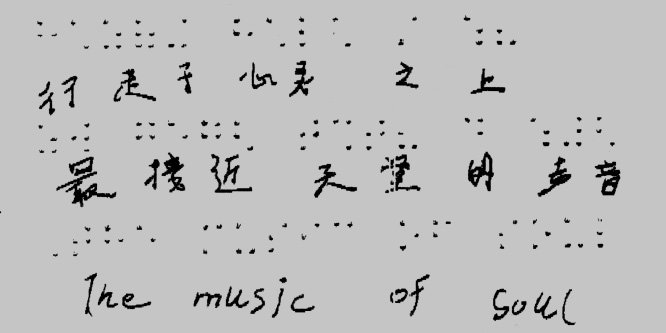 行走于 心灵 之上
最接近 天堂 的 声音
The music of soul